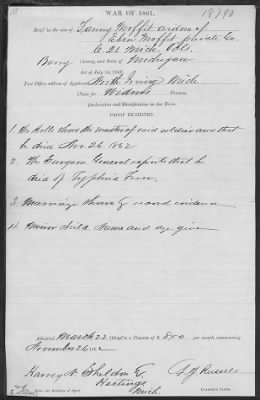 WAR OF 1861.
18790
Brief in the case of Fanny Moffit widow of
Eben Moffit private Co.
C. 21 Mich Vols.
Barry County, and State of Michigan
Act of July 14, 1862.
Post Office address of Applicant, North Irving Mich
Claim for Widows Pension.
Declaration and Identification in due Form.
PROOF EXHIBITED.
1 The Rolls show the muster of said soldier and that
he died Nov 26 1862
2 The Surgeon General reports that he
died of Typhoid Fever.
3 Marriage shown by record evidence
4 Minor child. Name and age given
Admitted March 23, 1863, to a Pension of $ 8.00 per month commencing
November 26 1862
Harvey N. Sheldon
Hastings
Mich.
Name and Residence of Agent.
Russell
EXAMINING CLERK.